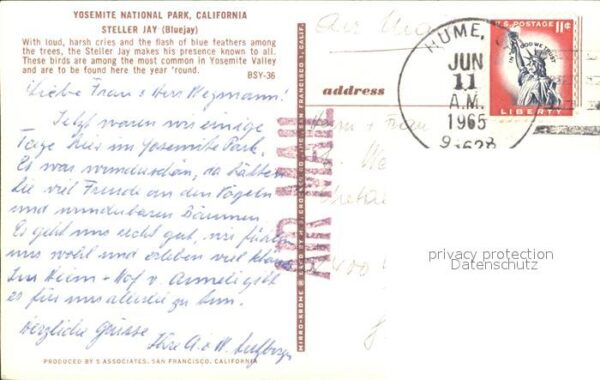 YOSEMITE NATIONAL PARK, CALIFORNIA
STELLER JAY (Bluejay)
With loud, harsh cries and the flash of blue feathers among
the trees, the Steller Jay makes his presence known to all.
These birds are among the most common in Yosemite Valley
and are to be found here the year 'round.
BSY-36
Liebe Frau + Herr Wegmann!
Jetzt waren wir einige
Tage hier im Yosemite Park.
Es war wunderschön, da hätten
Sie viel Freude an den Vögeln
und wunderbaren Bäumen.
Es geht uns recht gut, wir fühlen
uns wohl und erleben viel
Im Heim - Hof v. Anneli gibt
es für uns allerlei zu tun.
Herzliche Grüsse
Ihre A. + W.
PRODUCED BY S ASSOCIATES, SAN FRANCISCO, CALIF.
Air Mail
address
AIR MAIL
AIR MAIL
Herr + Frau
HUME,
JUN
11
A.M.
1965
U.S. POSTAGE 11¢
IN GOD WE TRUST
LIBERTY
privacy protection
Datenschutz